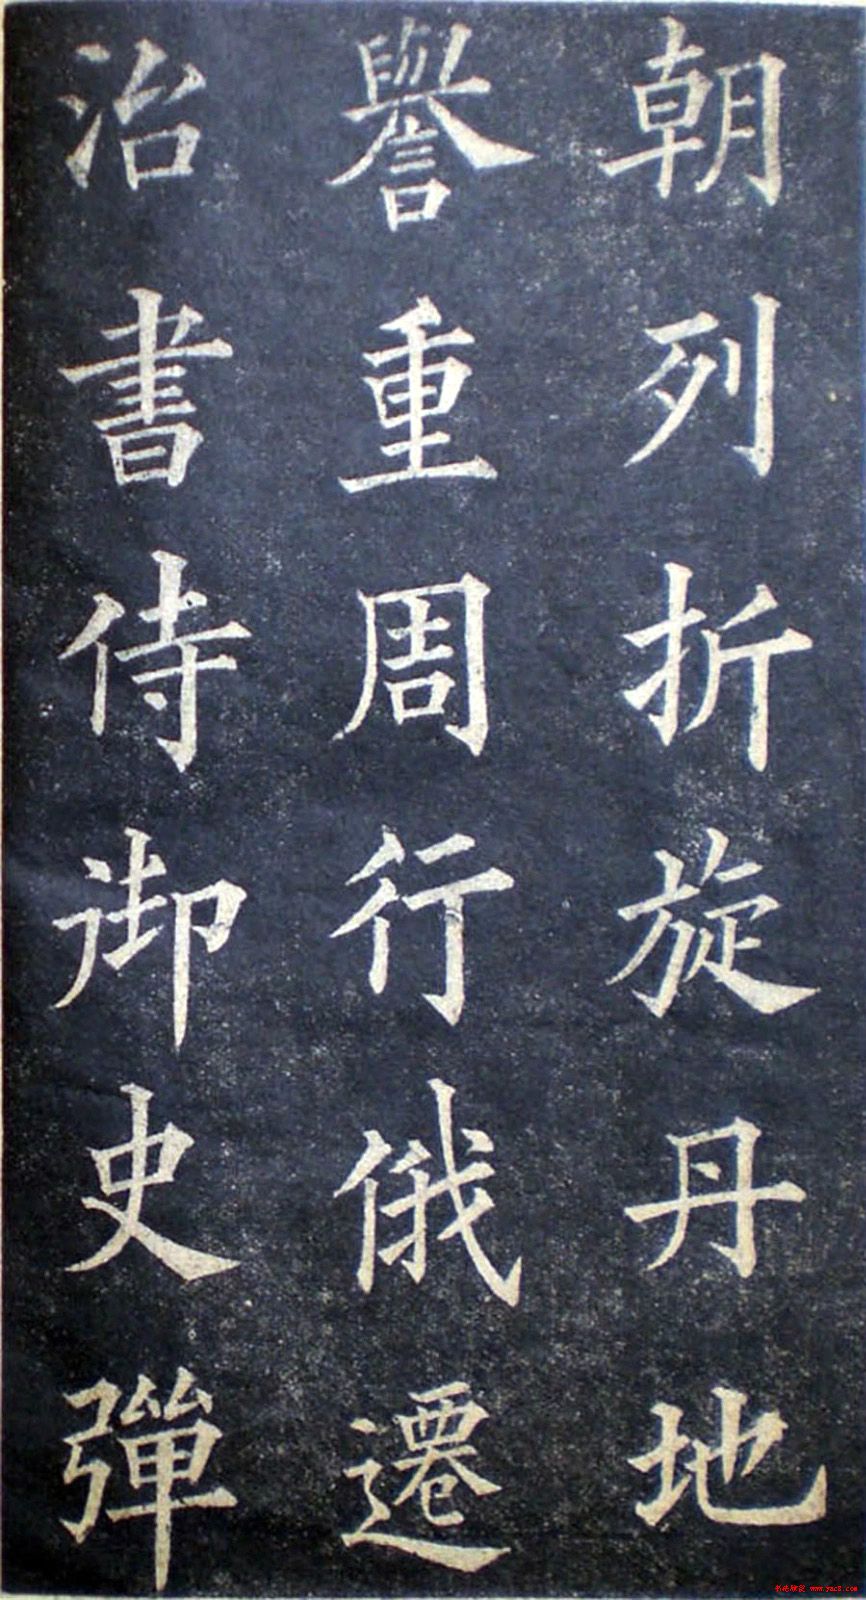 朝列折旋丹地
譽重周行俄遷
治書侍御史彈
书法欣赏 www.yac8.com